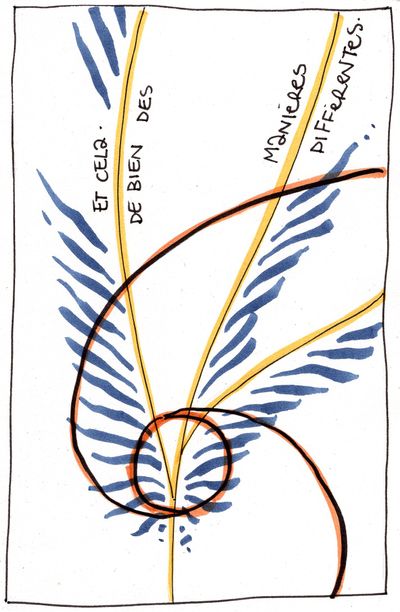 ET CELA.
DE BIEN DES
MANIÈRES
DIFFÉRENTES.